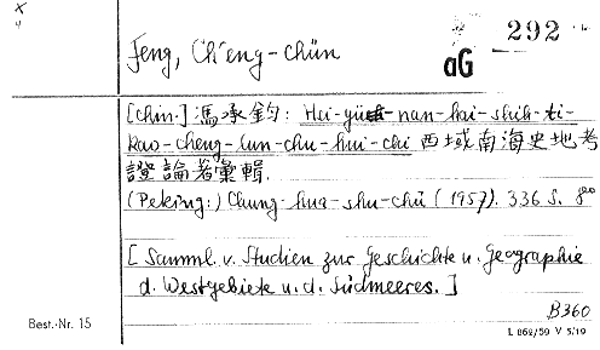 X
4
292
Feng, Ch'eng-chün
aG
[chin.] 馮承鈞: Hsi-yü-nan-hai-shih-ti-
kao-cheng-lun-chu-hui-chi 西域南海史地考
證論著彙輯.
(Peking:) Chung-hua-shu-chü (1957). 336 S. 8°
[Samml. v. Studien zur Geschichte u. Geographie
d. Westgebiete u. d. Südmeeres.]
B360
Best.-Nr. 15
L 862/59 V 5/19